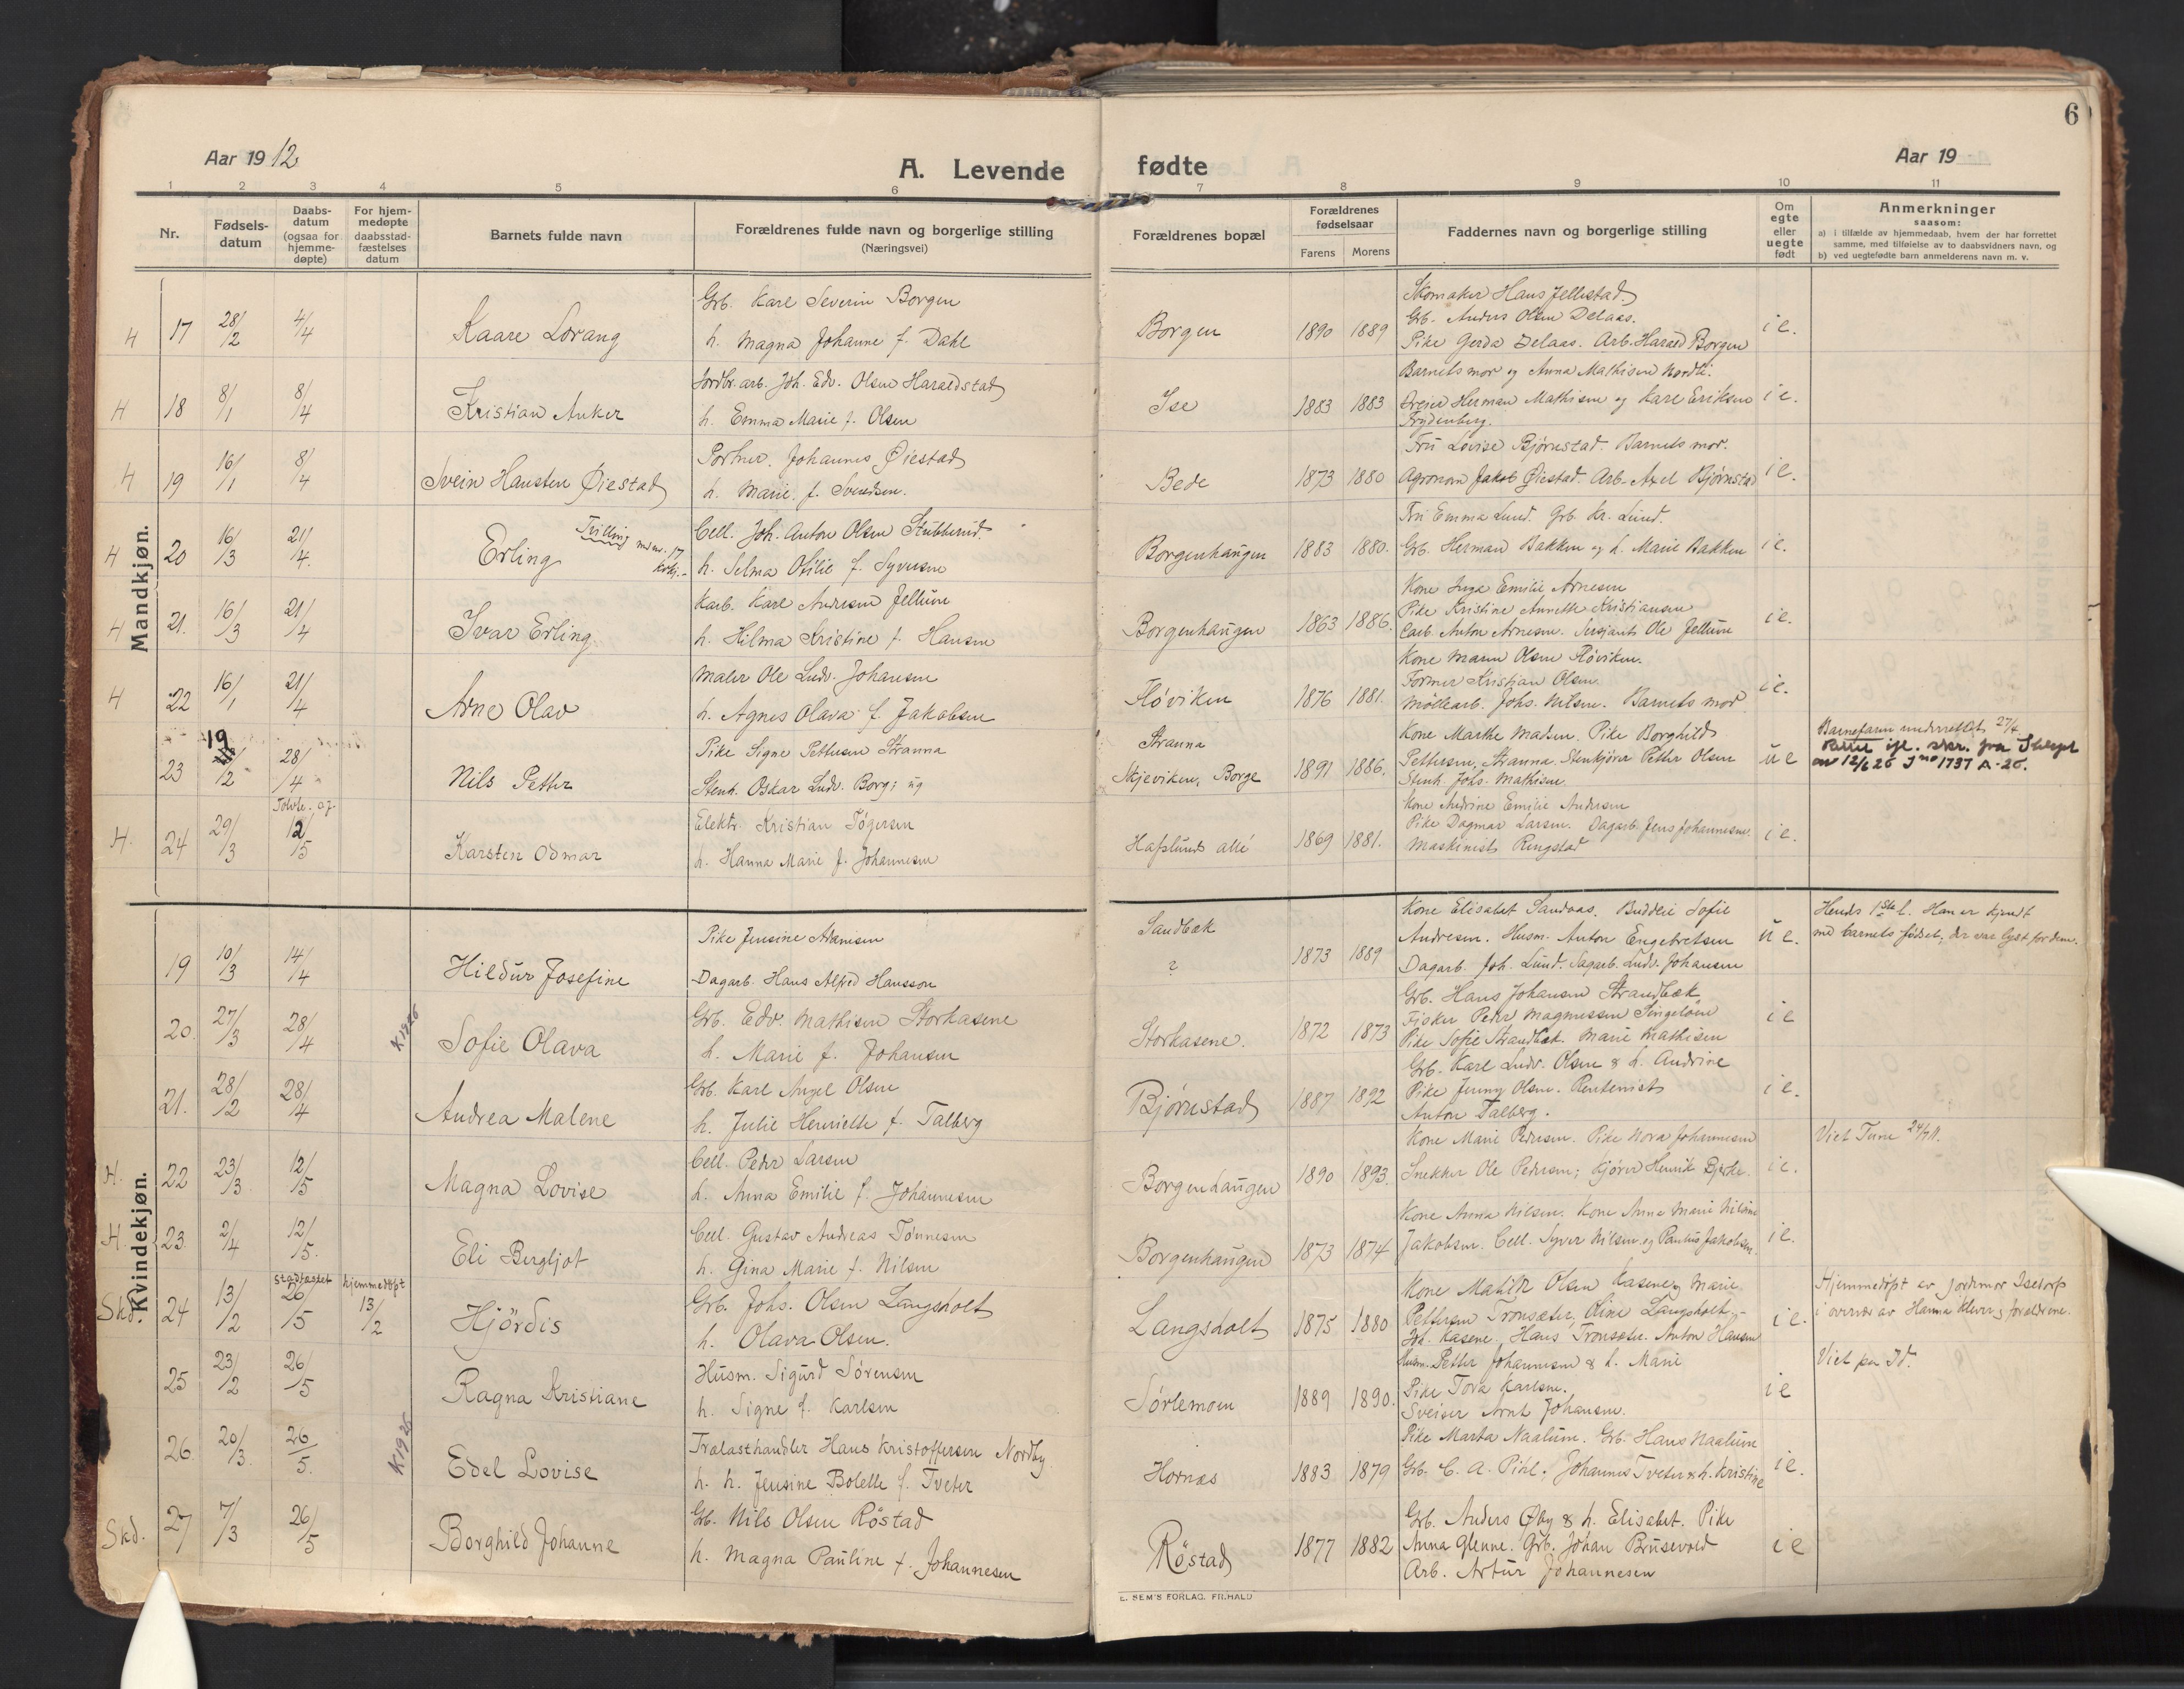 Aar 1912
A. Levende
1 2 3 4 5 6
Nr.
Fødsels-
datum
Daabs-
datum
(ogsaa for
hjemme-
døpte)
For hjem-
medøpte
daabsstad-
fæstelses
datum
Barnets fulde navn
Forældrenes fulde navn og borgerlige stilling
(Næringsvei)
Mandkjøn.
Grb. Karl Severin Borgen
H 17 28/2 4/4 Kaare Lorang
h. Magna Johanne f. Dahl
Jordbr.arb. Joh. Edv. Olsen Haraldstad
H 18 8/1 8/4 Kristian Anker
h. Emma Marie f. Olsen
Portner. Johannes Øiestad
H 19 16/1 8/4 Svein Hansten Øiestad
h. Marie f. Svendsen.
Cell. Joh. Anton Olsen Stubberud
H 20 16/3 21/4. Erling Trilling
h. Selma Otilie f. Syversen
Karb. Karl Andersen Jellum
H 21. 16/3 21/4 Ivar Erling.
h. Hilma Kristine f. Hansen
Maler Ole Ludv. Johansen
H 22 16/1 21/4 Arne Olav
h. Agnes Olava f. Jakobsen
Pike Signe Pettersen Stranna
23 19/2 28/4 Nils Petter
Stenh. Oskar Ludv. Borg; ug
Elektr. Kristian Tögersen
H. 24 29/3 12/5 Karsten Odmar
h. Hanna Marie f. Johannesen
Kvindekjøn.
Pike Jensine Adamsen
19 10/3 14/4 Hildur Josefine
Dagarb. Hans Alfred Hansson
Grb. Edv. Mathisen Storkasene
20. 27/3 28/4 K1926 Sofie Olava
h. Marie f. Johansen
Grb. Karl Angel Olsen
21. 28/2 28/4 Andrea Malene
h. Julie Henriette f. Talberg
Cell. Peder Larsen
H. 22 23/3 12/5 Magna Lovise
h. Anna Emilie f. Johannesen
Cell. Gustav Andreas Tönnesen
H. 23 2/4 12/5. Eli Bergljot
h. Gina Marie f. Nilsen
stadfæstet hjemmedöpt
Grb. Johs. Olsen Langsholt
Skd. 24 13/2 26/5 13/2 Hjördis
h. Olava Olsen.
Husm. Sigurd Sörensen
25 23/2 26/5 Ragna Kristiane
h. Signe f. Karlsen
Trælasthandler Hans Kristoffersen Nordby
26 20/3 26/5. K1926 Edel Lovise
h. h. Jensine Bolette f. Tveter
Grb. Nils Olsen Röstad
Skd. 27 7/3 26/5 Borghild Johanne
h. Magna Pauline f. Johannesen
6
fødte
Aar 19
7 8 9 10 11
Forældrenes bopæl
Forældrenes
fødselsaar
Farens Morens
Faddernes navn og borgerlige stilling
Om
egte
eller
uegte
født
Anmerkninger
saasom:
a) i tilfælde av hjemmedaab, hvem der har forrettet
samme, med tilføielse av to daabsvidners navn, og
b) ved uegtefødte barn anmelderens navn m. v.
Skomaker Hans Jellestad
Grb. Anders Olsen Delaas.
Borgen 1890 1889 Pike Gerda Delaas. Arb. Harald Borgen i e.
Barnets mor og Anna Mathisen Nordli.
Ise 1883 1883 Dreier Herman Mathisen og Karl Eriksen i e.
Frydenberg.
Fru Lovise Bjørnestad. Barnets mor.
Bede 1873 1880 Agronom Jakob Øiestad. Arb. Axel Bjørnstad i e.
Fru Emma Lund. Grb. Kr. Lund.
Borgenhaugen 1883 1880. Grb. Herman Bakken og h. Marie Bakken i e.
Kone Inga Emilie Arnesen
Pike Kristine Annette Kristiansen
Borgenhaugen 1863 1886. Carb. Anton Arnesen. Sersjant Ole Jellum i e.
Kone Maren Olsen Höviken.
Former Kristian Olsen.
Höviken 1876 1881. Möllearb. Johs. Nilsen. Barnets mor i e.
Stranna Kone Marthe Madsen. Pike Borghild
Skjeviken, Borge 1891 1886. Pettersen, Stranna. Stenkjører Petter Olsen u e
Stenh. Johs. Mathisen.
Barnefaren underrettet 27/4
Kone Andrine Emilie Andersen
Pike Dagmar Larsen. Dagarb. Jens Johannesen.
Hafslund allé 1869 1881. Maskinist Ringstad i e.
Sandbæk Kone Elisabet Sandaas. Budeie Sofie
Andresen. Husm. Anton Engebretsen u e.
? 1873 1889 Dagarb. Joh. Lund. Sagarb. Ludv. Johansen
Hends 1ste l. Han er kjendt
med barnets födsel; der var lyst for dem.
Grb. Hans Johansen Strandbæk
Fisker Peder Magnussen Singelöen
Storkasene. 1872 1873 Pike Sofie Strandbæk. Marie Mathisen i e
Grb. Karl Ludv. Olsen & h. Andrine
Bjørnestad 1887 1892 Pike Jenny Olsen. Rentenist i e.
Anton Talberg.
Kone Marie Pedersen. Pike Nora Johannesen
Borgenhaugen 1890 1893. Snekker Ole Pedersen; kjører Henrik Bjerke. i e.
Viet Tune 24/9 11.
Kone Anna Nilsen. Kone Anne Marie Nilsen
Borgenhaugen 1873 1874 Jakobsen. Cell. Syver Nilsen og Paulus Jakobsen. i e.
Kone Matilde Olsen Kasene, Marie
Langsholt 1875 1880 Pettersen Tronsæter, Oline Langsholt,
Joh. Kasene. Hans Tronsæter. Anton Hansen i e.
Hjemmedöpt av jordmor Isetorp
i overvær av Hanna Klever & forældrene.
Husm. Petter Johannesen & h. Marie
Sörlemoen 1889 1890. Pike Tora Karlsen. i e
Sveiser Arnt Johansen.
Viet paa Id.
Pike Marta Naalum. Grb. Hans Naalum
Hornæs 1883 1879 Grb. C. A. Pihl. Johannes Tveter & h. Kristine i e.
Grb. Anders Øby & h. Elisabet. Pike
Röstad 1877 1882 Anna Glenne. Grb. Johan Brusevold i e
Arb. Artur Johannesen
E. SEM'S FORLAG, FR.HALD